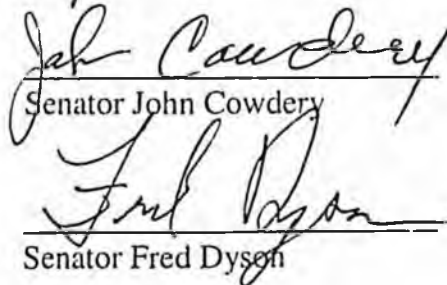 John Cowdery
Senator John Cowdery
Fred Dyson
Senator Fred Dyson